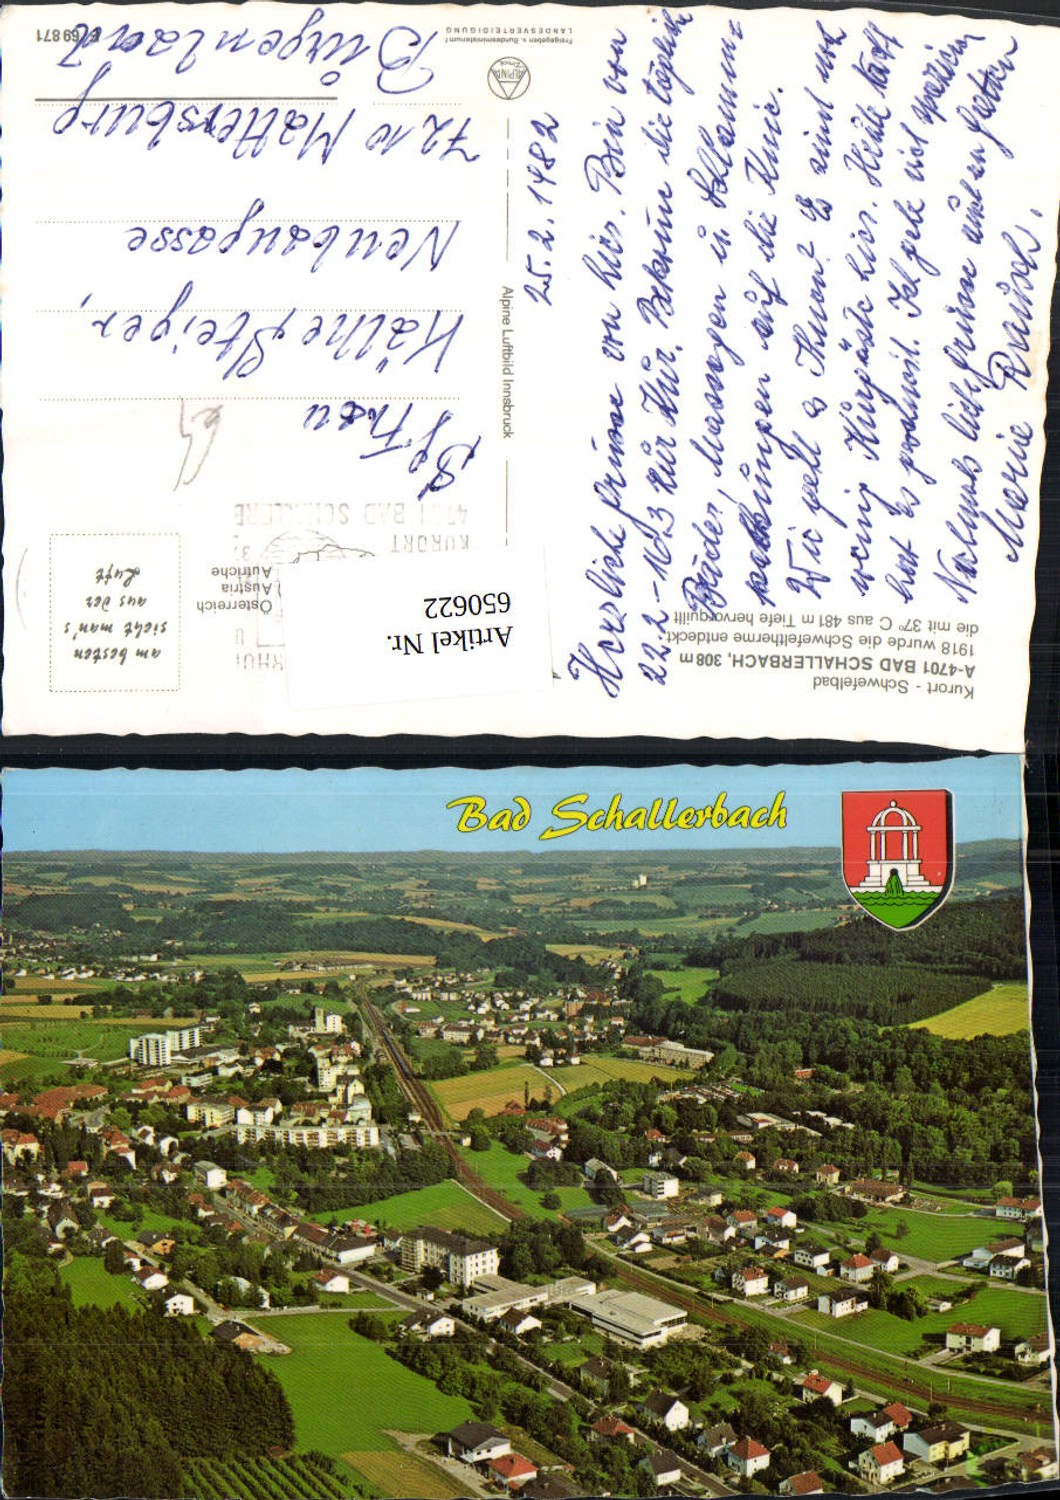 Kurort - Schwefelbad
A-4701 BAD SCHALLERBACH, 308 m
1918 wurde die Schwefeltherme entdeckt,
die mit 37° C aus 481 m Tiefe hervorquillt
25. 2. 1982
Herzliche Grüsse von hier. Bin vom
22.2 - 16.3 zur Kur. Bekomme die tägliche
Bäder, Massagen u. Schlamm-
packungen auf die Knie.
Wie geht es Ihnen? Es sind nur
wenig Kurgäste hier. Heute Nacht
hat es geschneit. Ich gehe viel spazieren
Nochmals liebe Grüsse und an Gatten
Marie
Alpine Luftbild Innsbruck
ALPINE
Freigegeben v. Bundesministerium f.
LANDESVERTEIDIGUNG
69871
Artikel Nr.
650622
Österreich
Austria
Autriche
KURORT
4701 BAD SCHALLERB
am besten
sieht man's
aus der
Luft
Frau
Käthe Steiger,
Neubaugasse
7210 Mattersburg
Burgenland
Bad Schallerbach